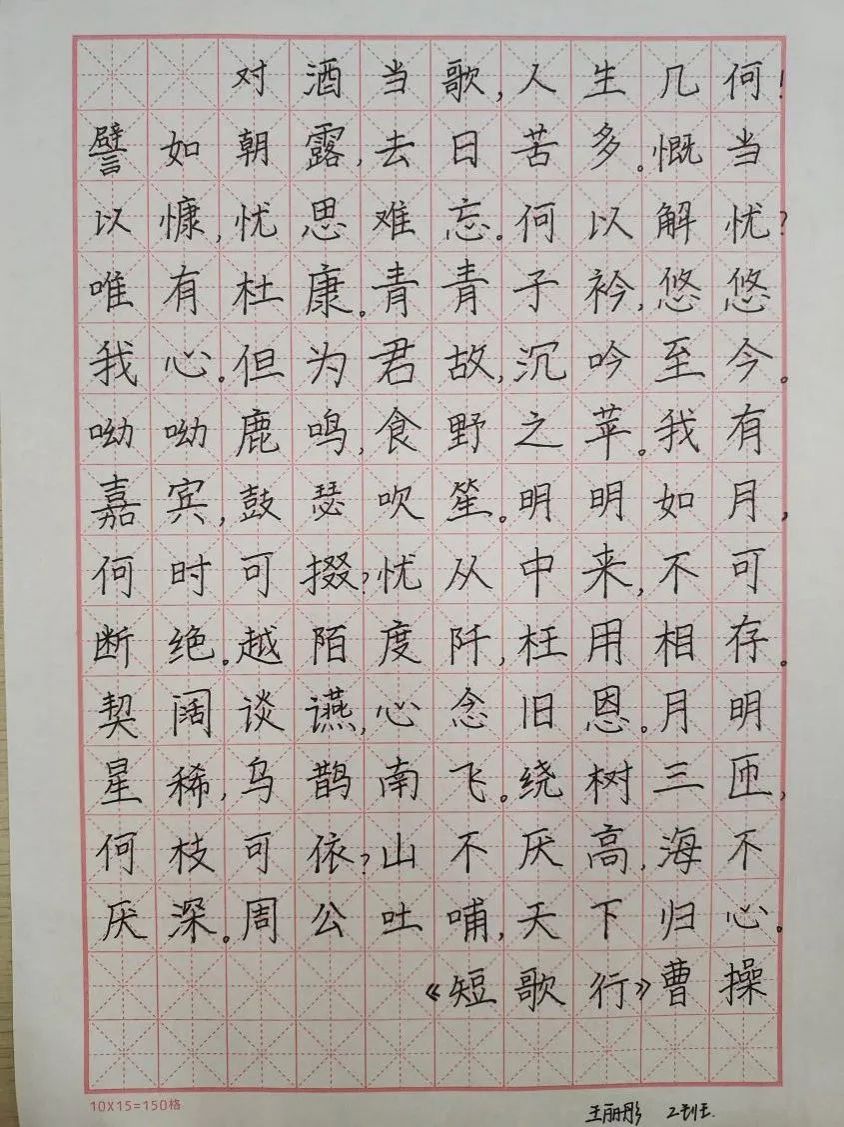 对酒当歌,人生几何!
譬如朝露,去日苦多。慨当
以慷,忧思难忘。何以解忧?
唯有杜康。青青子衿,悠悠
我心。但为君故,沉吟至今。
呦呦鹿鸣,食野之苹。我有
嘉宾,鼓瑟吹笙。明明如月,
何时可掇?忧从中来,不可
断绝。越陌度阡,枉用相存。
契阔谈讌,心念旧恩。月明
星稀,乌鹊南飞。绕树三匝,
何枝可依?山不厌高,海不
厌深。周公吐哺,天下归心。
《短歌行》曹操
10X15=150格
王丽彤 2班